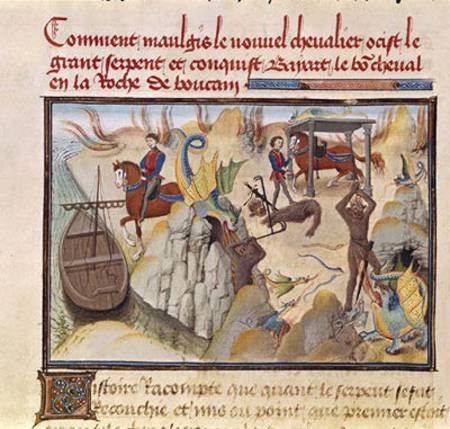 Comment maulgis le nouuel cheualier ocist le
grant serpent et conquist Bayart le bō cheual
en la Roche de boucam
Listoire Racompte que quant le serpent se fut
recouchie et mis ou point que premier estoit